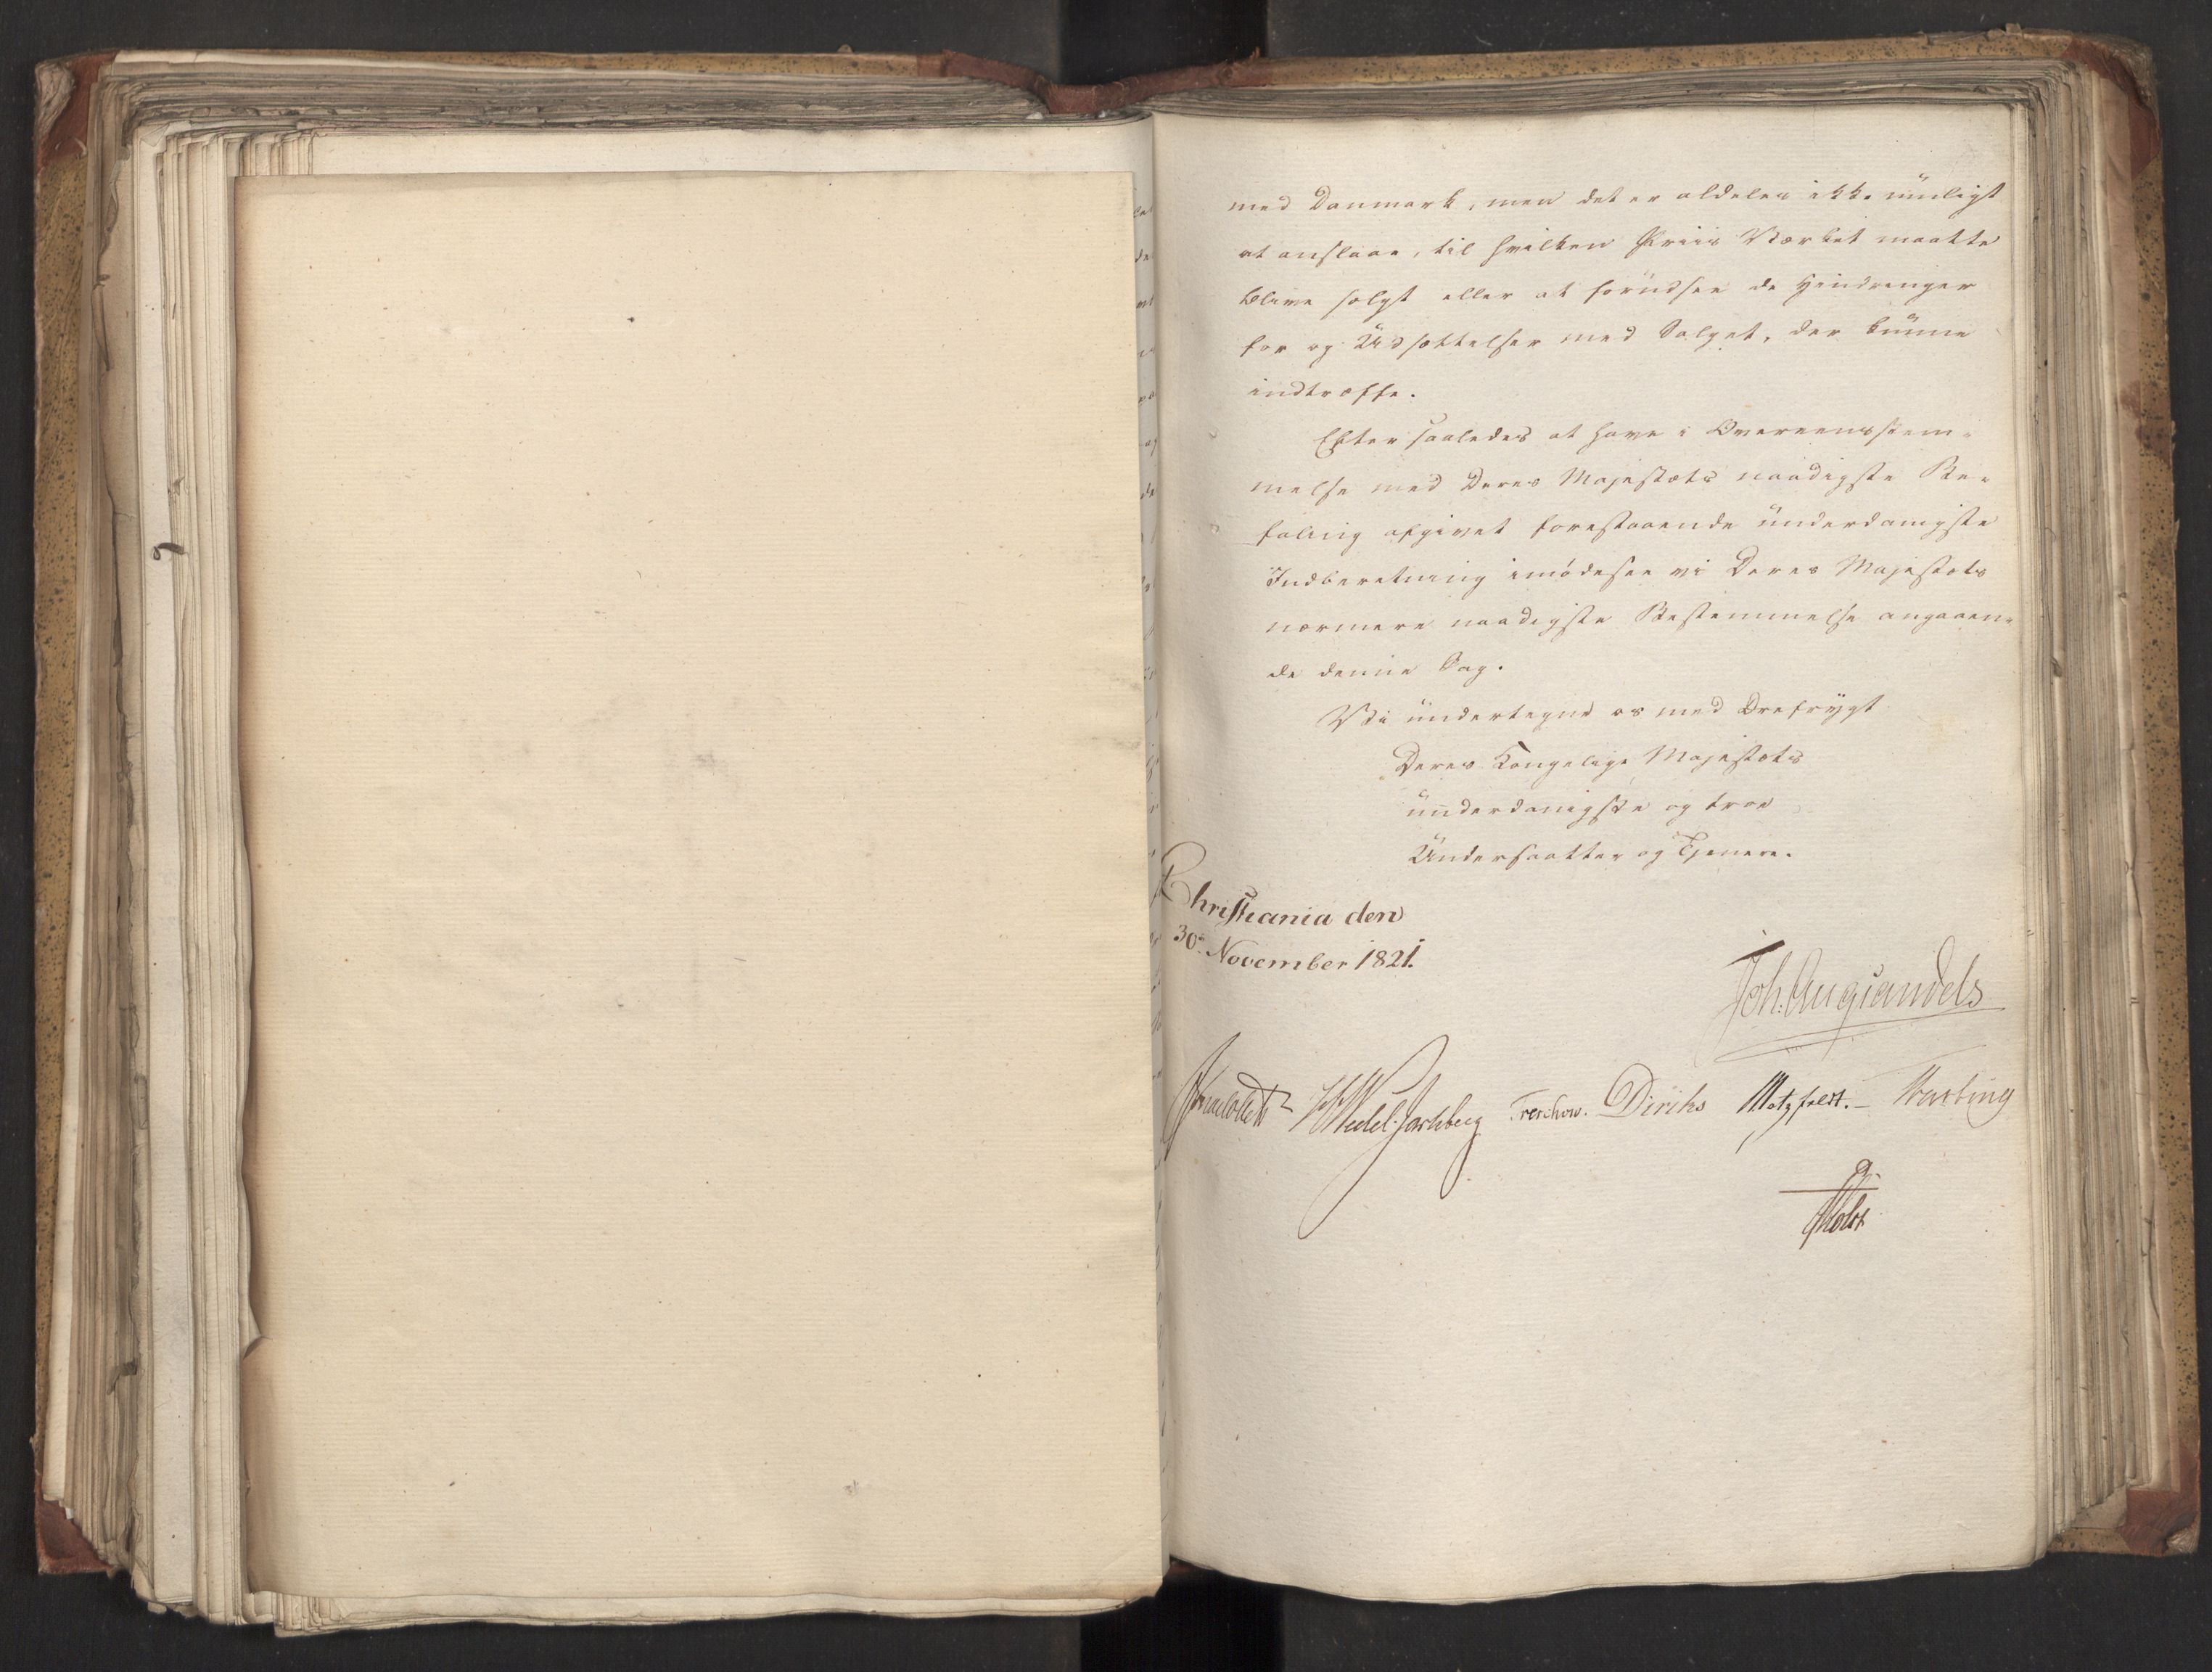 med Danmark, men det er aldeles ikke muligt
at anslaae, til hvilken Priis Værket maatte
blive solgt eller at forudsee de Hindringer
for og Udsættelser med Salget, der kunne
indtræffe.
Efter saaledes at have i Overeensstem-
melse med Deres Majestæts naadigste Be-
faling afgivet forestaaende underdanigste
Indberetning imødesee vi Deres Majestæts
nærmere naadigste Bestemmelse angaaen-
de denne Sag.
Vi undertegne os med Ærefrygt
Deres Kongelige Majestæts
underdanigste og troe
Undersaatter og Tjenere.
Christiania den
30. November 1821.
Joh: Aug: Sandels
JCollett HWedel Jarlsberg Treschow. Diriks Motzfeldt. – Fasting
Holst